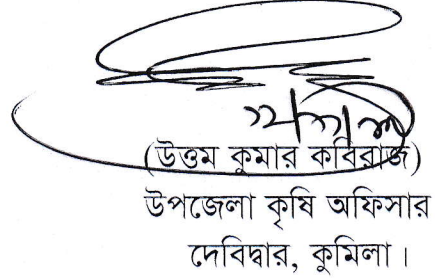 (উত্তম কুমার কবিরাজ)
উপজেলা কৃষি অফিসার
দেবিদ্বার, কুমিলা।